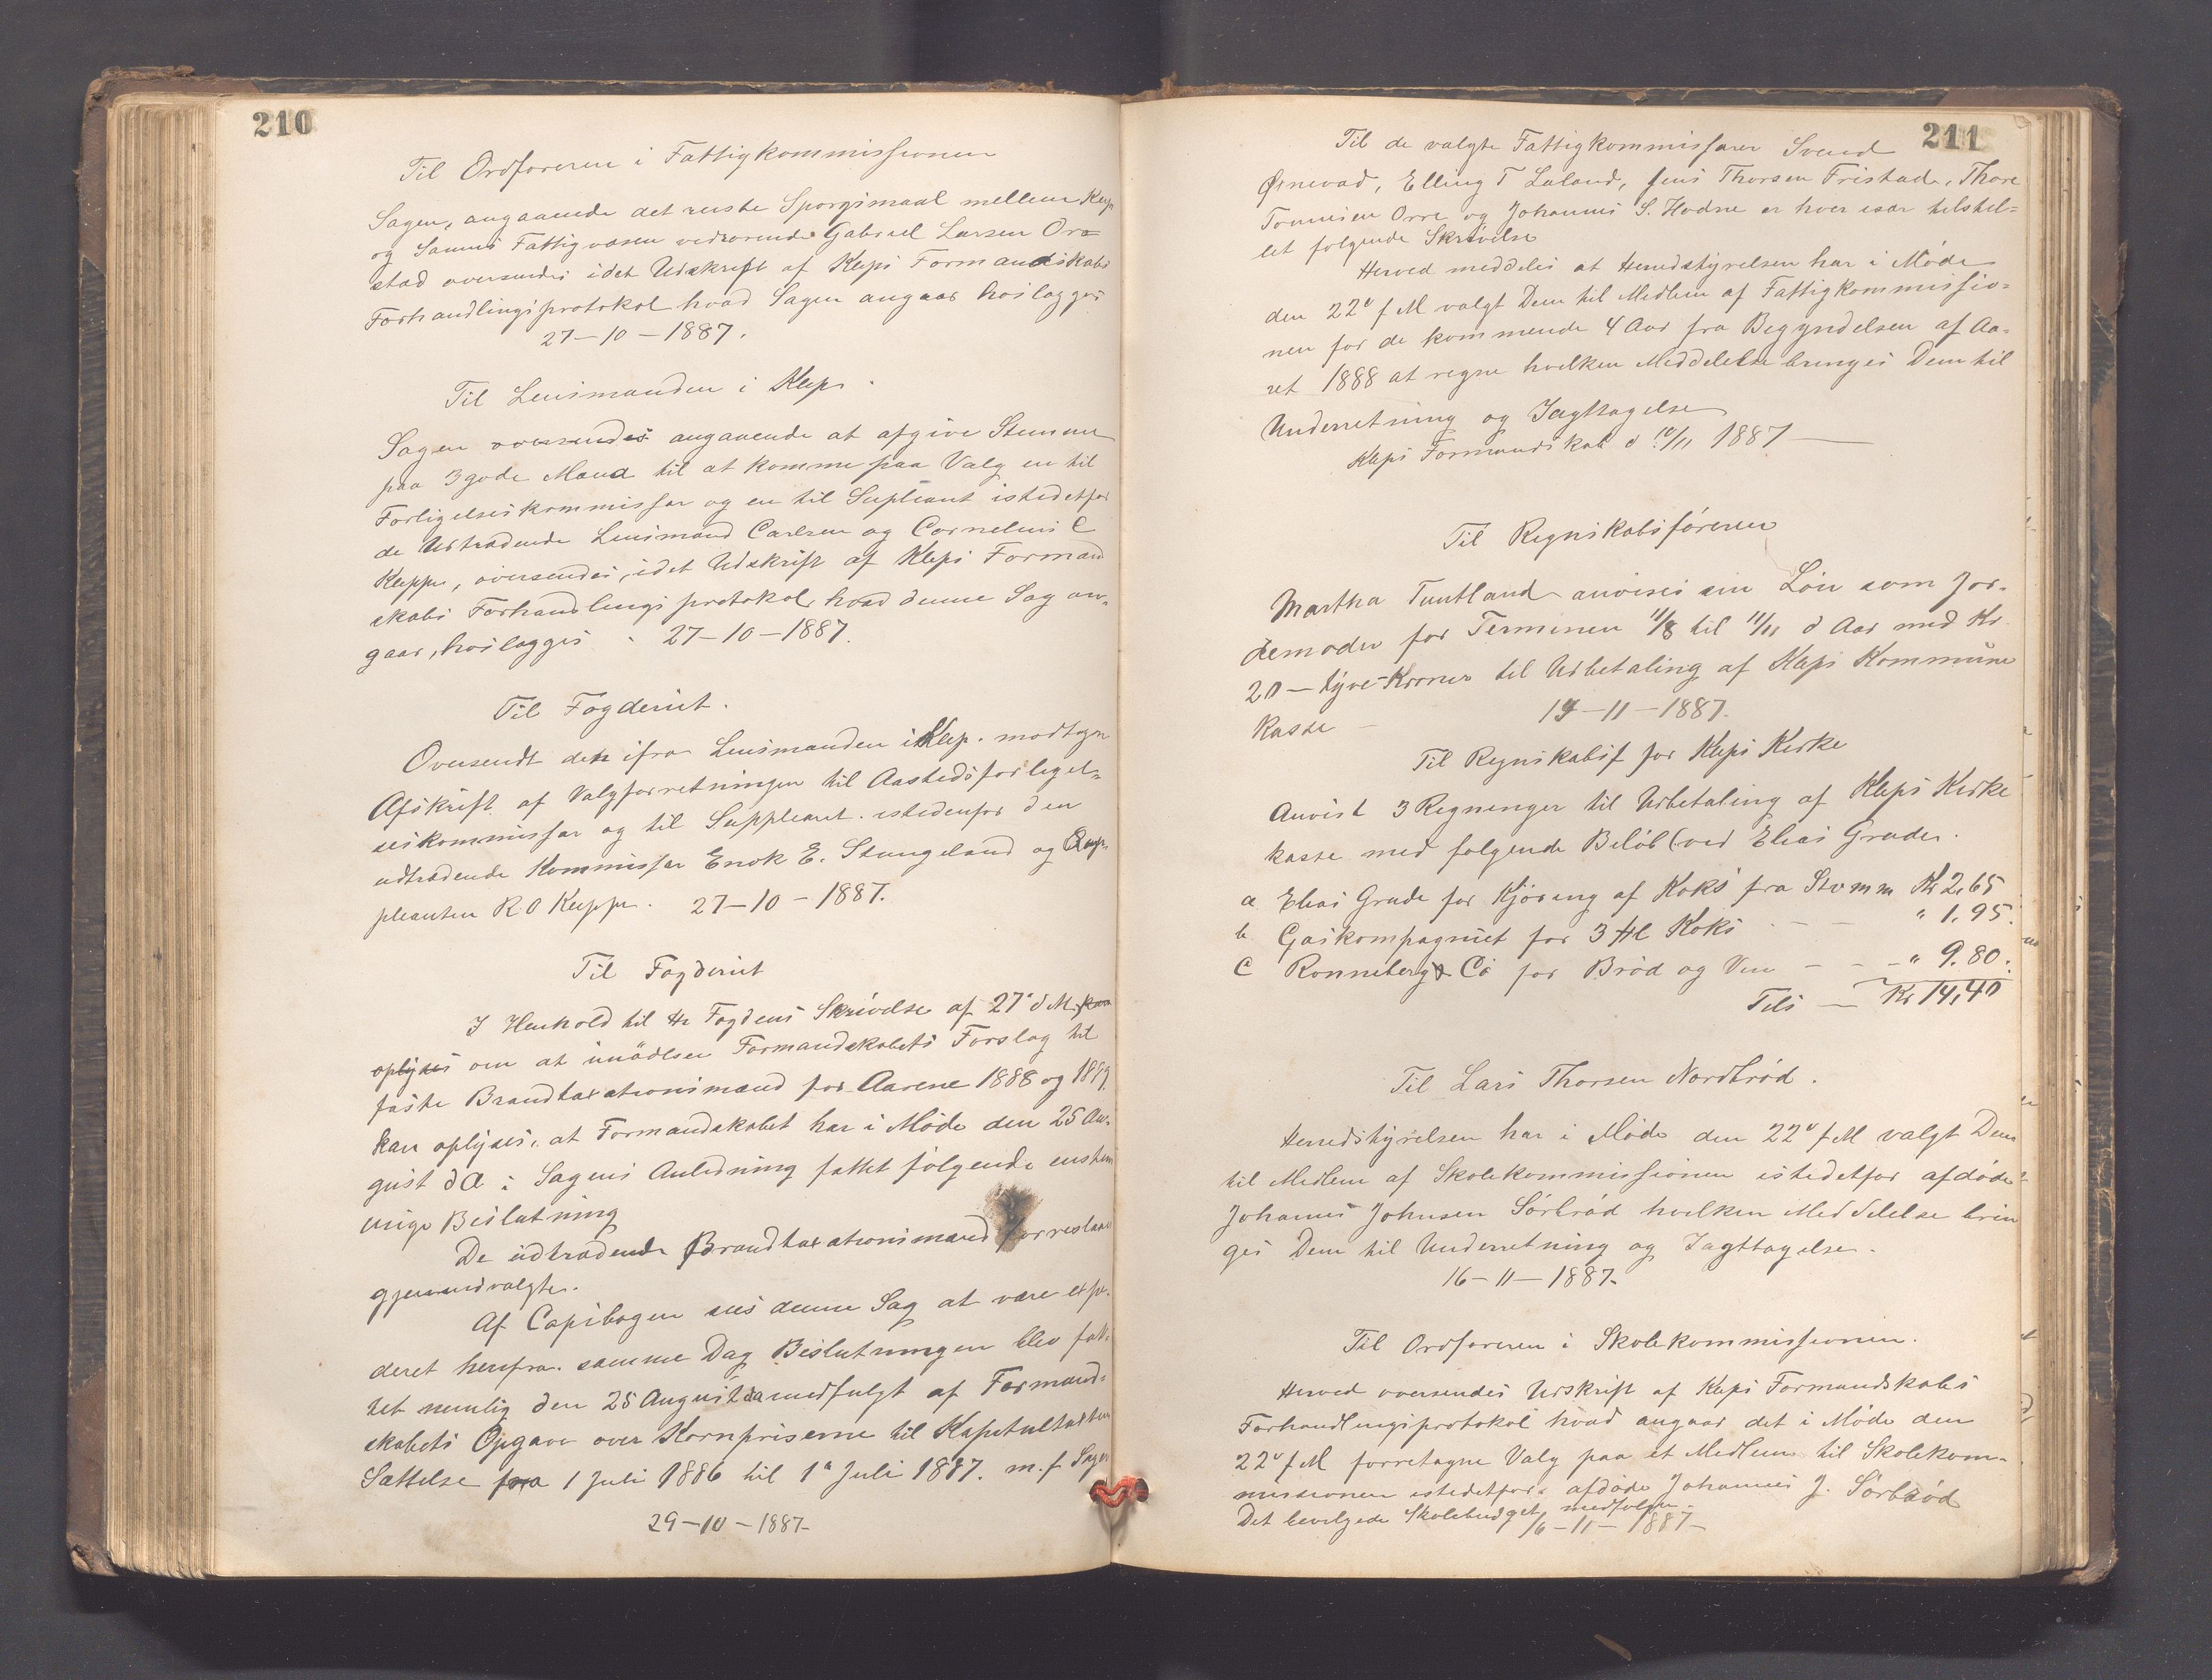 210
Til Ordføreren i Fattigkommissionen
Sagen, angaaende det reiste Spørgsmaal mellem Klep
og Sannes Fattigvæsen vedrørende Gabriel Larsen Orre
stad oversendes idet Udskrift af Kleps Formandskabs
Forhandlingsprotokol hvad Sagen angaar hoslægges
27–10–1887.
Til Lensmanden i Klep.
Sagen oversendes angaaende at afgive Stemme
paa 3 gode Mænd til at komme paa Valg en til
Forligelseskommissær og en til Supleant istedetfor
de Udtrædende Lensmand Carlsen og Cornelius C
Kleppe, oversendes, idet Udskrift af Kleps Formand
skabs Forhandlingsprotokol, hvad denne Sag an-
gaar, hoslægges 27–10–1887.
Til Fogderiet.
Oversendt den ifra Lensmanden i Klep. modtagne
Afskrift af Valgforretningen til Aastedsforligel-
seskommissær og til Suppleant istedenfor den
udtrædende Kommissær Enok E. Stangeland og Sup-
pleanten R O Kleppe. 27–10–1887.
Til Fogderiet
I Henhold til Hr Fogdens Skrivelse af 27de d M. kan
oplyses om at inndlsen Formandskabets Forslag til
faste Brandtaxationsmænd for Aarene 1888 og 1889,
kan oplyses, at Formandskabet har i Møde den 25 Au-
gust d A i Sagens Anledning fattet følgende enstem
mige Beslutning
De udtrædende Brandtaxationsmænd forreslaaes
gjenudvalgte.
Af Copibogen sees denne Sag at være expe-
deret herifra samme Dag Beslutningen blev fat-
tet nemlig den 25 August da medfulgt af Formand-
skabets Opgave over Kornpriserne til Kapiteltaxten
Sættelse fra 1 Juli 1886 til 1ste Juli 1887. m.f Sagen
29–10–1887–
211
Til de valgte Fattigkommissærer Svend
Ørnevad, Elling T Laland, Jens Thorsen Fristad, Thore
Tønnesen Orre og Johannes S. Hodne er hver især tilstil-
let følgende Skrivelse
Herved meddeles at Herredstyrelsen har i Møde
den 22de f M valgt Dem til Medlem af Fattigkommissio-
nen for de kommende 4 Aar fra Begyndelsen af Aa-
ret 1888 at regne hvilken Meddelelse bringes Dem til
Underretning og Iagttagelse
Kleps Formandskab d 10/11 1887 —
Til Regnskabsføreren
Martha Tuntland anvises sin Løn som Jor-
demoder for Terminen 11/8 til 11/11 d Aar med Kr.
20 — tyve Kroner til Udbetaling af Kleps Kommune
Kasse — 14–11–1887.
Til Regnskabsf for Kleps Kirke
Anvist 3 Regninger til Udbetaling af Kleps Kirke
kasse med følgende Beløb (ved Elias Grude.
a Elias Grude for Kjøring af Koks fra Stømm Kr 2,65
b Gaskompagniet for 3 Hl Koks — — " 1.95.
c Rønneberg & Co for Brød og Vin – – – " 9.80.
Tils — Kr 14,40
Til Lars Thorsen Nordbrød.
Herredstyrelsen har i Møde den 22de f M valgt Dem
til Medlem af Skolekommissionen istedetfor afdøde
Johannes Johnsen Sørbrød hvilken Meddelelse brin
ges Dem til Underretning og Iagttagelse.
16–11–1887–
Til Ordføreren i Skolekommissionen.
Herved oversendes Udskrift af Kleps Formandskabs
Forhandlingsprotokol hvad angaar det i Møde den
22de f M foretagne Valg paa et Medlem til Skolekom-
missionen istedetfor afdøde Johannes J. Sørbrød
Det bevilgede Skolebudget medfølger.
16–11–1887–